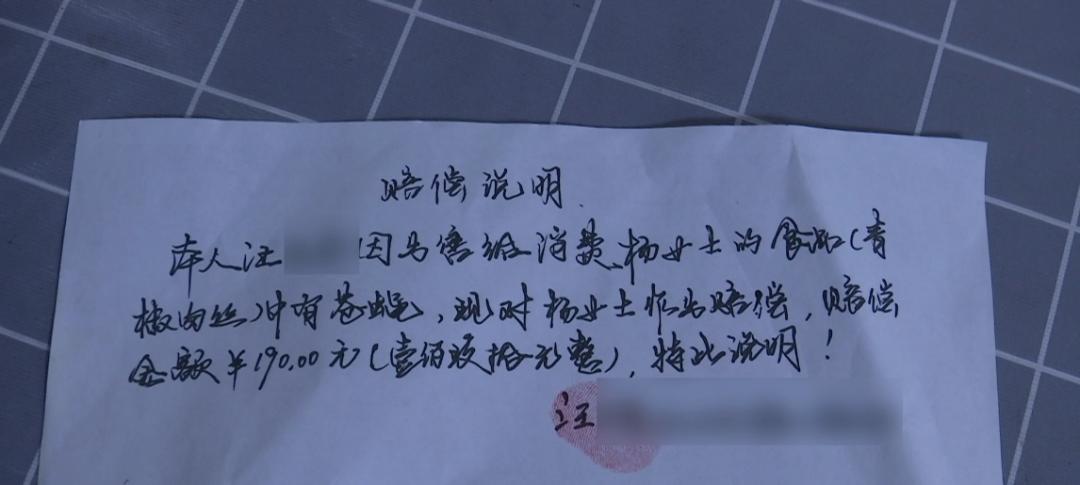 赔偿说明
本人汪 因为害给消费、杨女士的食品(青
椒肉丝)中有苍蝇,现对杨女士作出赔偿,赔偿
金额¥190.00元(壹佰玖拾元整),特此说明!
汪